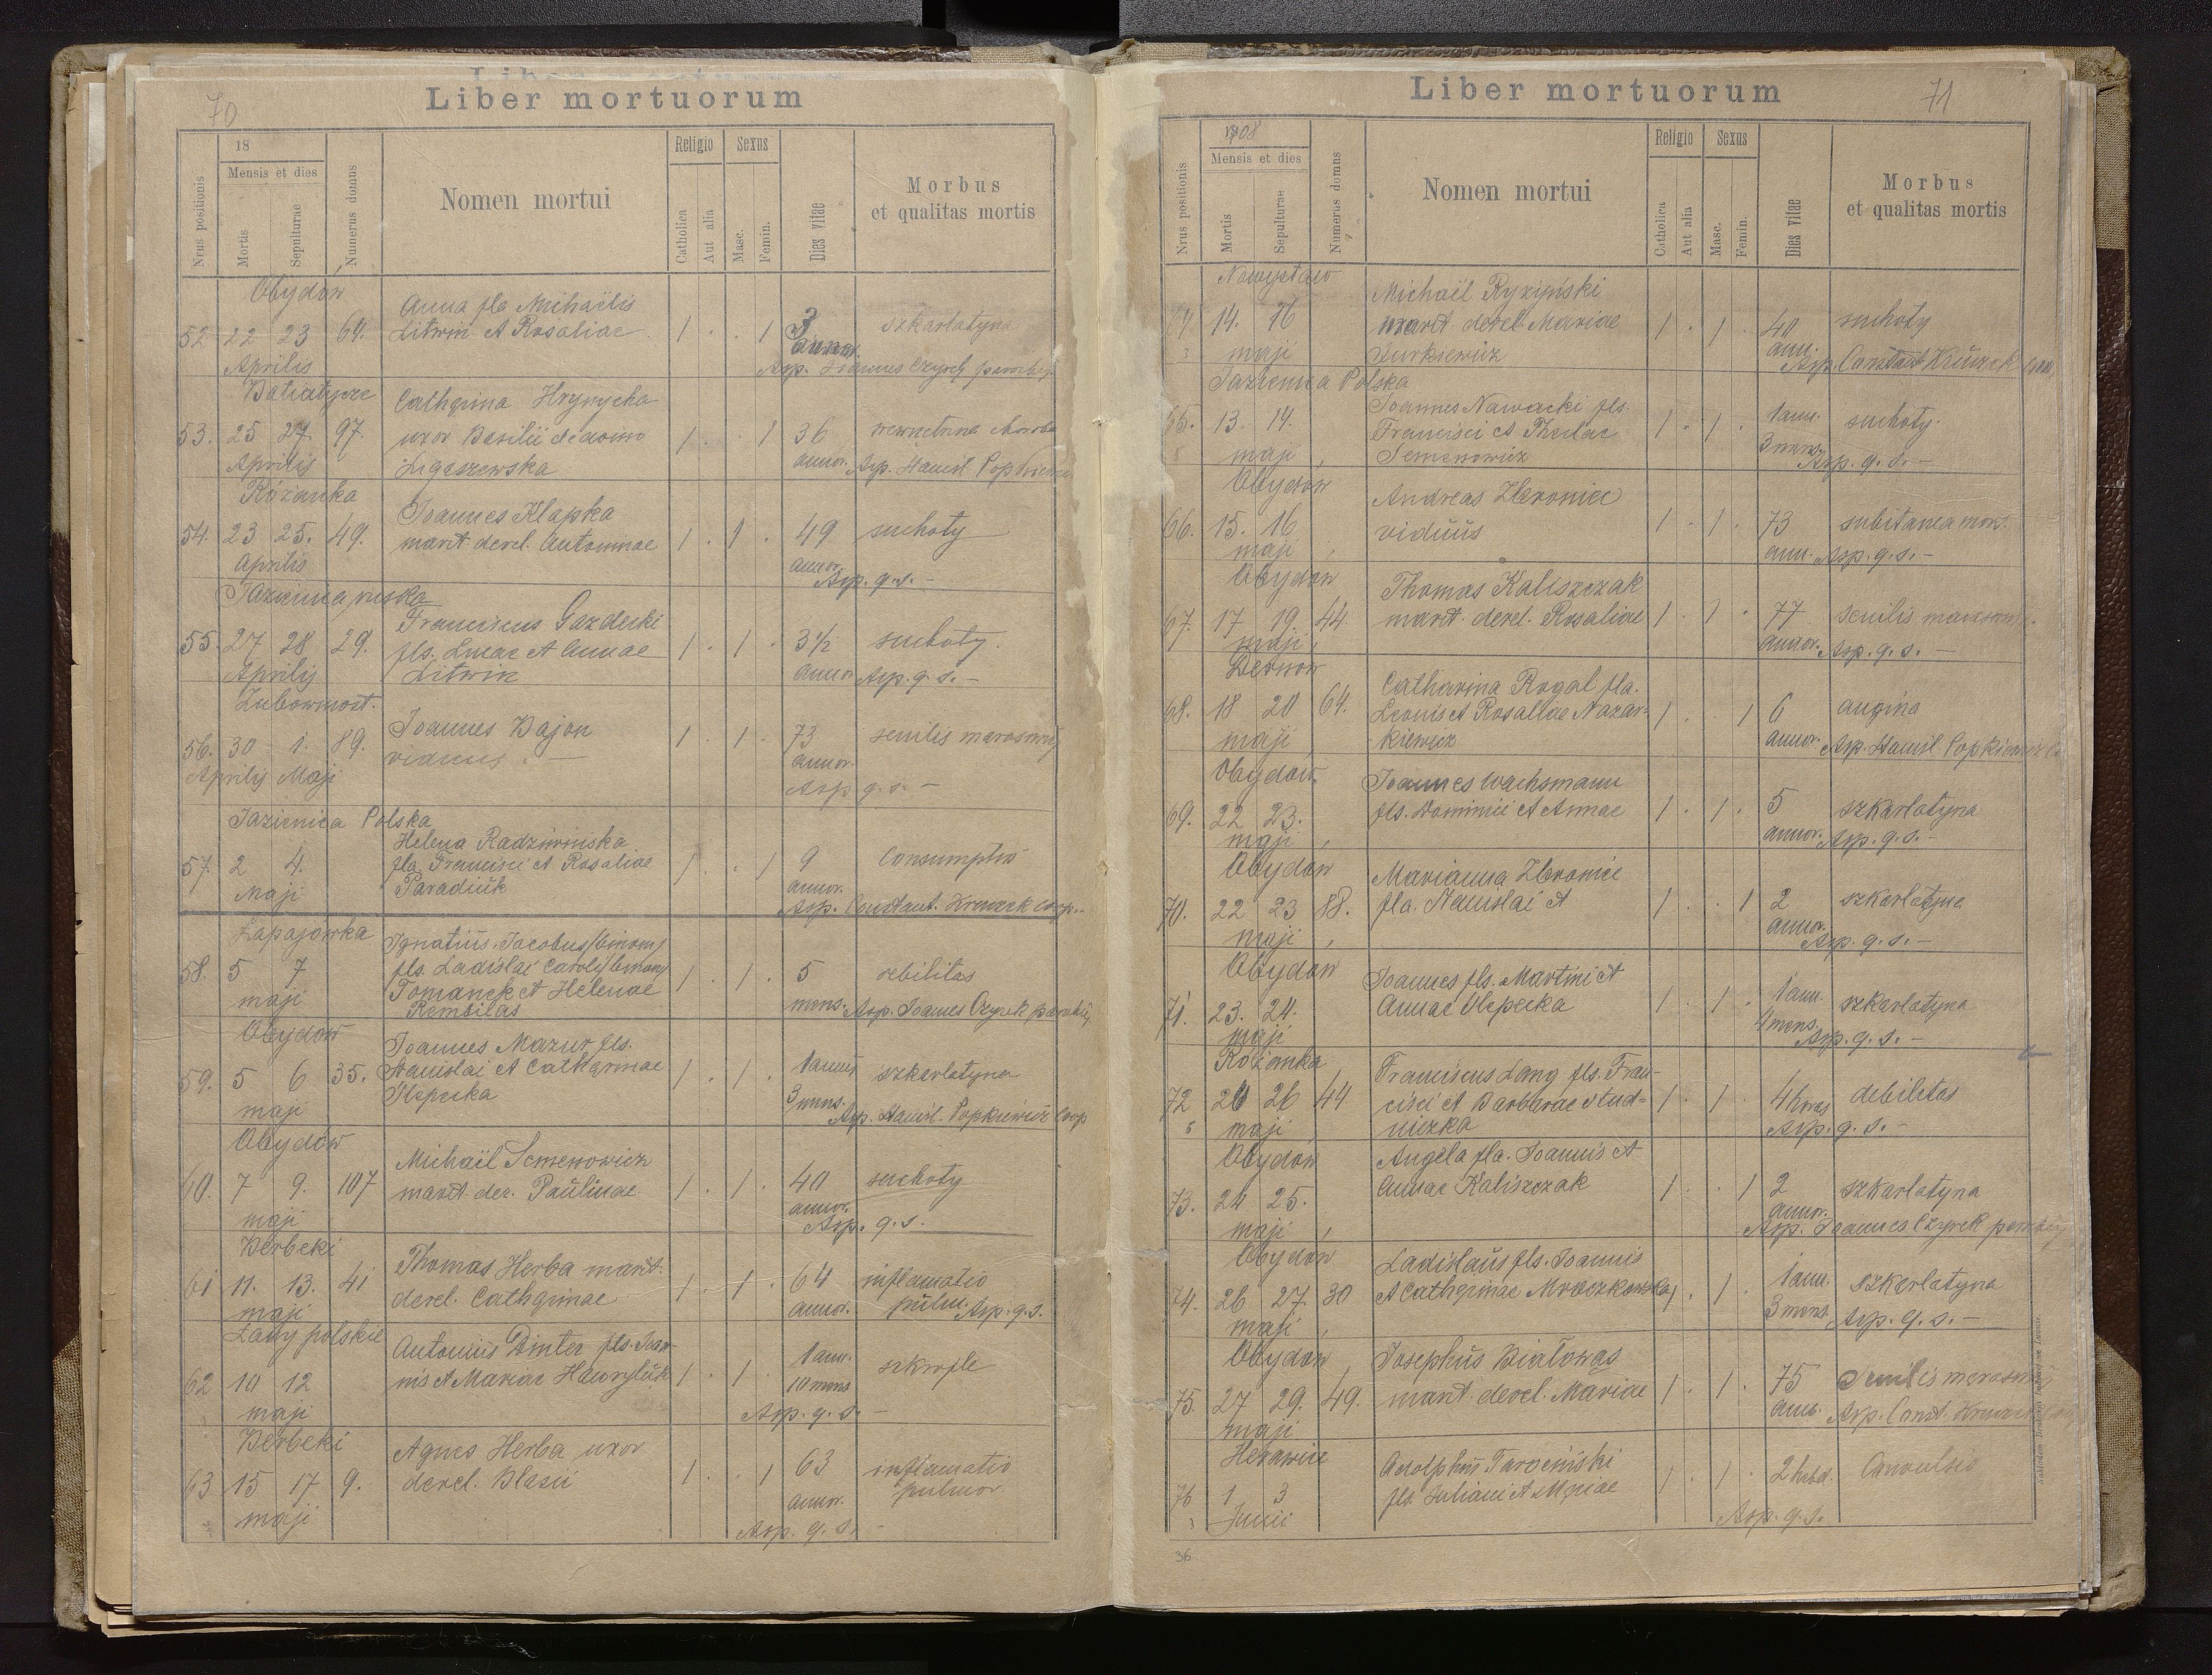 Liber mortuorum
70
18
Mensis et dies
Nrus positionis
Mortis
Sepulturae
Numerus domus
Nomen mortui
Religio
Catholica
Aut alia
Sexus
Masc.
Femin.
Dies vitae
Morbus
et qualitas mortis
Obydów
Anna fla Michaëlis
52 22 23 64. Litwin et Rosaliae 1 . . 1 3 szkarlatyna
Aprilis annor. Asp. Joannes Czyrek
Batiatycze
Catharina Hrynycha
53. 25 27 97. uxor Basilii de domo 1 . . 1 36 wewnetrzna choroba
Aprilis Ligaszewska annor. Asp. Stanisl. Popkiewicz
Różanka
Joannes Klapka
54. 23 25. 49. marit. derel. Antoninae 1 . 1 . 49 suchoty
Aprilis annor. Asp. q. s. –
Jazienica ruska
Franciscus Gazdecki
55. 27 28 29. fls. Lucae et Annae 1 . 1 . 3½ suchoty.
Aprilis Litwin annor. Asp. q. s. –
Zubowmost.
Joannes Bajon
56. 30 1. 89. viduus. – 1 . 1 . 73 senilis marasmus
Aprilis Maji annor.
Asp q. s. –
Jazienica Polska
Helena Radziwinska
57. 2 4. fla Francisci et Rosaliae 1 . . 1 9 Consumptio
Maji Paradiuk annor.
Asp. Constant. Kruczek Coop. –
Łapajówka
Ignatius Jacobus (binom)
58. 5 7 fls. Ladislai Caroli (binom) 1 . 1 . 5 debilitas
maji Tomanek et Helenae mens. Asp. Joannes Czyrek
Rembilas
Obydów
Joannes Mazur fls.
59. 5 6 35. Stanislai et Catharinae 1 . 1 . 1 annus szkarlatyna
maji Slepecka 3 mens.
Asp. Stanisl. Popkiewicz Coop
Obydów
Michaël Semenowicz
60. 7 9. 107 marit. der. Paulinae 1 . 1 . 40 suchoty
maji annor.
Asp. q. s.
Berbeki
Thomas Herba marit.
61 11. 13. 41 derel. Catharinae 1 . 1 . 64 inflamatio
maji annor. pulm. Asp. q. s.
Łany polskie
Antonius Dmiter fls. Joan-
62 10 12 nis et Mariae Hawryluk 1 . 1 . 1 ann. szkrofle
maji 10 mens
Asp. q. s. –
Berbeki
Agnes Herba uxor
63 15 17 9. derel. Blasii 1 . . 1 63 inflamatio
maji annor. pulmor.
Asp. q. s. –
Liber mortuorum
71
1908
Mensis et dies
Nrus positionis
Mortis
Sepulturae
Numerus domus
Nomen mortui
Religio
Catholica
Aut alia
Sexus
Masc.
Femin.
Dies vitae
Morbus
et qualitas mortis
Nowystaw
Michaël Ryziński
64 14. 16 marit derel. Mariae 1 . 1 . 40 suchoty
maji Jurkiewicz ann. Asp. Constant Kruczek
Jazienica Polska
Joannes Nawacki fls.
65. 13. 14. Francisci et Theclae 1 . 1 . 1 ann. suchoty
maji Semenowicz 3 mens.
Asp. q. s. –
Obydów
Andreas Zleronice
66. 15. 16 viduus 1 . 1 . 73 subitanea mors.
maji ann. Asp. q. s. –
Obydów
Thomas Kaliszczak
67. 17 19. 44. marit. derel. Rosaliae 1 . 1 . 77 senilis marasmus.
maji annor. Asp. q. s. –
Dernów
Catharina Rogal fla.
68. 18 20 64. Leonis et Rosaliae Nazar- 1 . . 1 6 angina
maji kiewicz annor. Asp. Stanisl. Popkiewicz
Obydów
Joannes Wachsmann
69. 22 23. fls. Dominici et Annae 1 . 1 . 5 szkarlatyna
maji annor. Asp. q. s. –
Obydów
Marianna Zleronice
70. 22 23 88. fla. Stanislai et 1 . . 1 2 szkarlatyna
maji annor.
Asp. q. s. –
Obydów
Joannes fls. Martini et
71. 23. 24. Annae Slepecka 1 . 1 . 1 ann. szkarlatyna
maji 4 mens.
Asp. q. s. –
Różanka
Franciscus Lang fls. Fran-
72 26 44 cisci et Barbarae Stud- 1 . 1 . 4 horas debilitas
maji niczka Asp. q. s. –
Obydów
Angela fla. Joannis et
73. 24 25. Annae Kaliszczak 1 . . 1 2 szkarlatyna
maji annor.
Asp. Joannes Czyrek
Obydów
Ladislaus fls. Joannis
74. 26 27 30 et Catharinae Mroczkowska 1 . 1 . 1 ann. szkarlatyna
maji 3 mens. Asp. q. s. –
Obydów
Josephus Białowąs
75. 27 29. 49. marit. derel. Mariae 1 . 1 . 75 Senilis marasmus
maji ann. Asp. Const. Kruczek
Adolphus Tarociński
76 1 3 fls. Juliani et Mariae 1 . 1 . 2 hebd. Convulsio
Junii Asp. q. s.
36